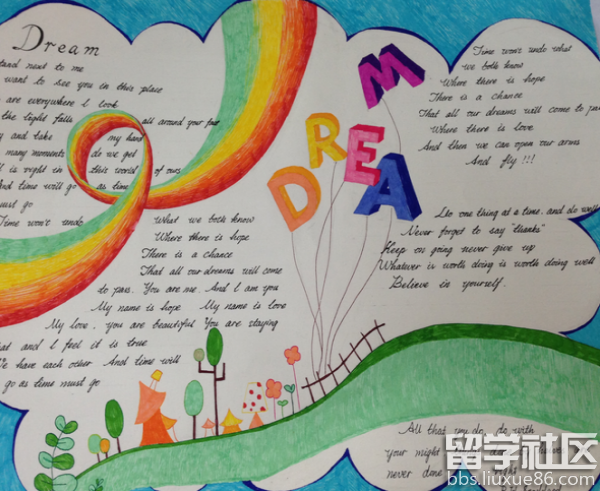 Dream
tand next to me
want to see you in this place
are everywhere I look
the light falls all around your face
y and take my hand
many moments do we get
ll is right in this world of ours
And time will go as time
ust go
Time won't undo
What we both know
Where there is hope
There is a chance
That all our dreams will come
to pass. You are me. And I am you
My name is hope My name is love
My love, you are beautiful You are staying
hat and I feel it is true
We have each other And time will
go as time must go
DREAM
Time won't undo what
we both know
Where there is hope
There is a chance
That all our dreams will come to pas
Where there is love
And then we can open our arms
And fly!!!
Do one thing at a time, and do well
Never forget to say "thanks"
Keep on going never give up
Whatever is worth doing is worth doing well
Believe in yourself.
All that you do, do with
your might
never done right
留学社区
bbs.liuxue86.com